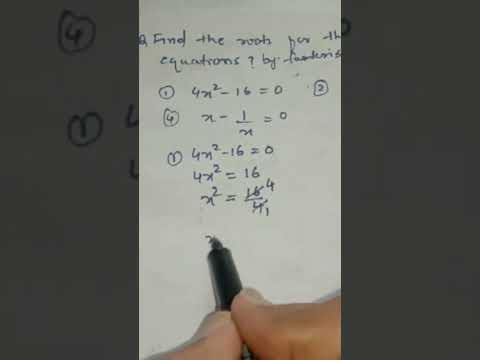 Q Find the roots for the
equations? by
① 4x² - 16 = 0 ②
④ x - 1/x = 0
① 4x² - 16 = 0
4x² = 16
x² = 16/4 4 1
x